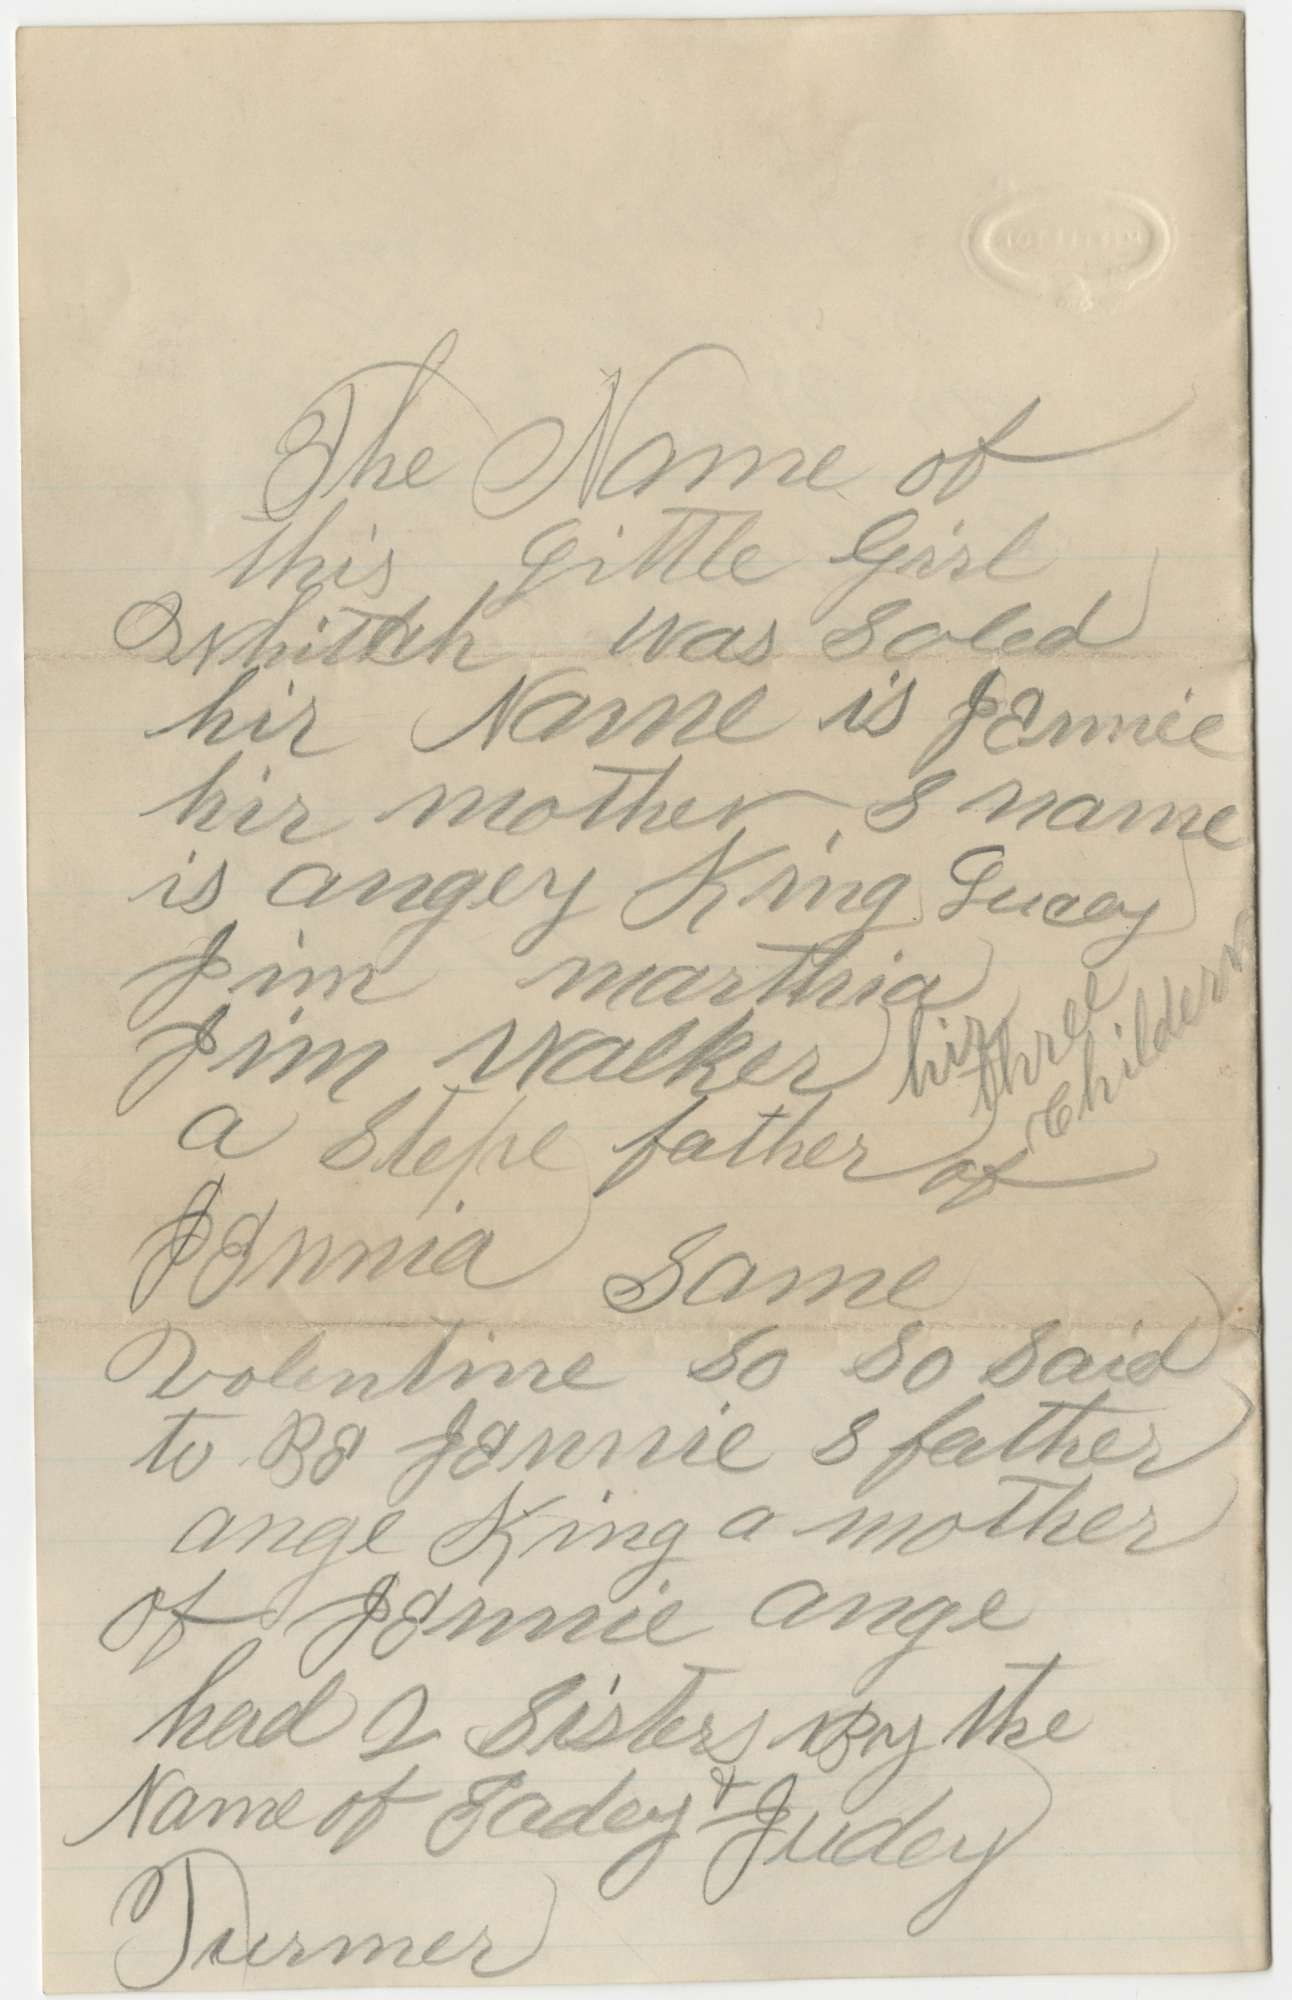 The Name of
this Little Girl
Whittch was soled
hir Name is JEnnie
hir mother s name
is angey King Lucey
Jim marthia
Jim Walker hir three Childern
a Stepe father of
JEnnia Same
Volentine so so said
to BE JEnnie s father
ange King a mother
of JEnnie ange
had 2 Sisters By the
Name of Ladey & Judey
Turmer